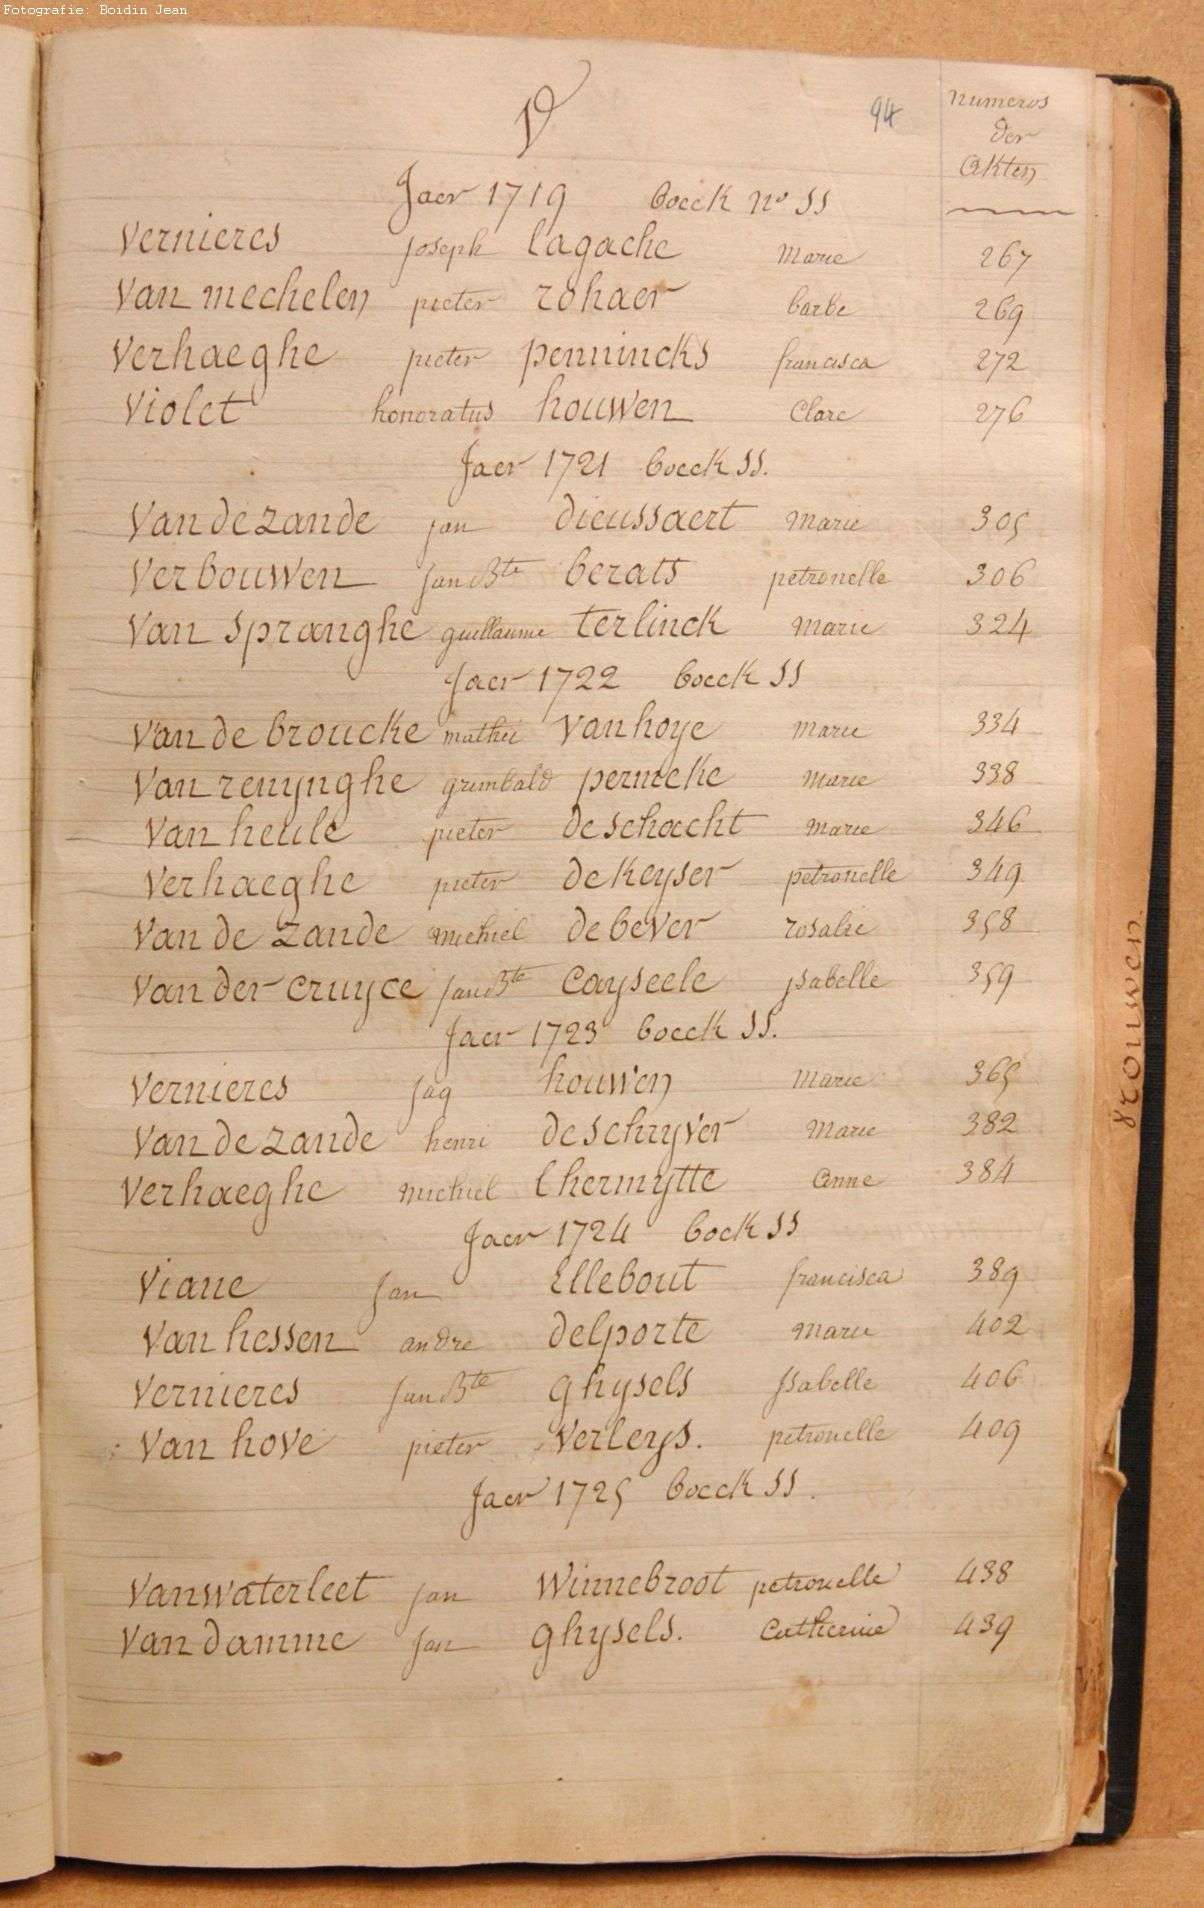 Fotografie: Boidin Jean
V
94
numeros
der
Akten
Jaer 1719 boeck No 11
Vernieres joseph lagache marie 267
Van mechelen pieter rohaer barbe 269
Verhaeghe pieter pennincks francisca 272
Violet honoratus houwen Clare 276
Jaer 1721 boeck 11.
Van de zande jan dieussaert marie 305
Verbouwen jan Bte berats petronelle 306
Van spranghe guillaume terlinck marie 324
Jaer 1722 boeck 11
Van de broucke mathei Van hoye marie 334
Van renynghe grimbald permeke marie 338
Van heule pieter de schacht marie 346
Verhaeghe pieter de Keyser petronelle 349
Van de zande michiel de bever rosalie 358
Van der cruyce jan Bte Cayseele ysabelle 359
Jaer 1723 boeck 11.
Vernieres jaq houwen marie 365
Van de zande henri de schryver marie 382
Verhaeghe michiel lhermytte anne 384
Jaer 1724 bock 11
Viane jan Ellebout francisca 389
Van hessen andre delporte marie 402
Vernieres jan Bte ghysels ysabelle 406
Van hove pieter Verleys. petronelle 409
Jaer 1725 boeck 11.
Van waterleet jan Winnebroot petronelle 438
Van damme jan ghysels. Catherine 439
vrouwen.